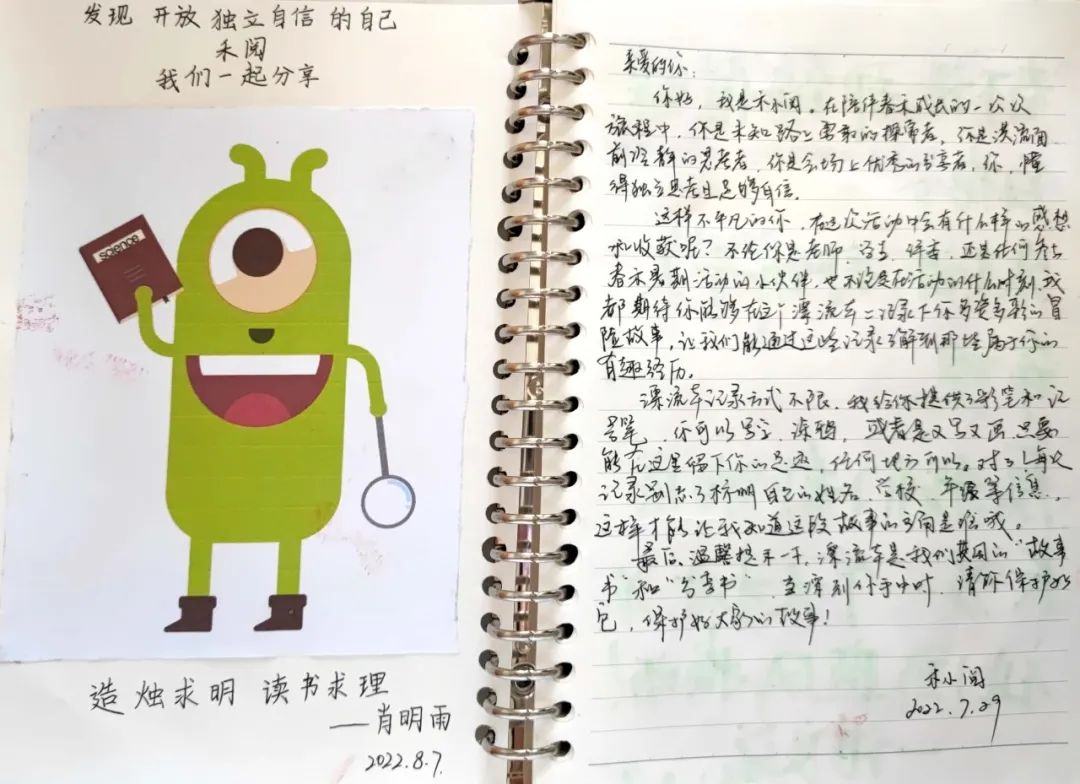 发现 开放 独立自信 的自己
禾阅
我们一起分享
science
造烛求明 读书求理
——肖明雨
2022.8.7.
亲爱的你:
你好,我是禾小阅。在陪伴着禾成长的一次次
旅程中,你是未知路上勇敢的探索者,你是洪流面
前冷静的思考者,你是会场上优秀的分享者,你,懂
得独立思考且足够自信。
这样不平凡的你,在这次活动中会有什么样的感想
和收获呢?不论你是老师、学生、伴读,还是任何参与
者禾暑期活动的小伙伴,也不论是在活动的什么时刻,我
都期待你能够在这个漂流本上记录下你多姿多彩的冒
险故事,让我们能通过这些记录了解到那些属于你的
有趣经历。
漂流本记录方式不限,我给你提供了彩笔和记
号笔,你可以写字、涂鸦,或者是又写又画,只要
能在这里留下你的足迹,任何地方可以。对了!每次
记录别忘了标明自己的姓名、学校、年级等信息,
这样才能让我知道这段故事的主角是谁哦。
最后,温馨提示一下,漂流本是我们共同的“故事
书”和“分享书”,当漂到你手中时,请你保护好
它,保护好大家的故事!
禾小阅
2022.7.29